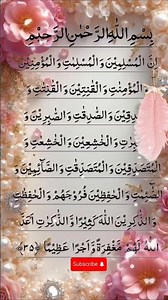 بِسْمِ اللهِ الرَّحْمٰنِ الرَّحِيْمِ
اِنَّ الْمُسْلِمِيْنَ وَالْمُسْلِمٰتِ وَالْمُؤْمِنِيْنَ
وَالْمُؤْمِنٰتِ وَالْقٰنِتِيْنَ وَالْقٰنِتٰتِ وَ
الصّٰدِقِيْنَ وَالصّٰدِقٰتِ وَالصّٰبِرِيْنَ وَ
الصّٰبِرٰتِ وَالْخٰشِعِيْنَ وَالْخٰشِعٰتِ وَ
الْمُتَصَدِّقِيْنَ وَالْمُتَصَدِّقٰتِ وَالصَّآئِمِيْنَ وَ
الصّٰٓئِمٰتِ وَالْحٰفِظِيْنَ فُرُوْجَهُمْ وَالْحٰفِظٰتِ
وَالذّٰكِرِيْنَ اللهَ كَثِيْرًا وَّالذّٰكِرٰتِ اَعَدَّ
اللهُ لَهُمْ مَّغْفِرَةً وَّاَجْرًا عَظِيْمًا ﴿۳۵﴾
Subscribe